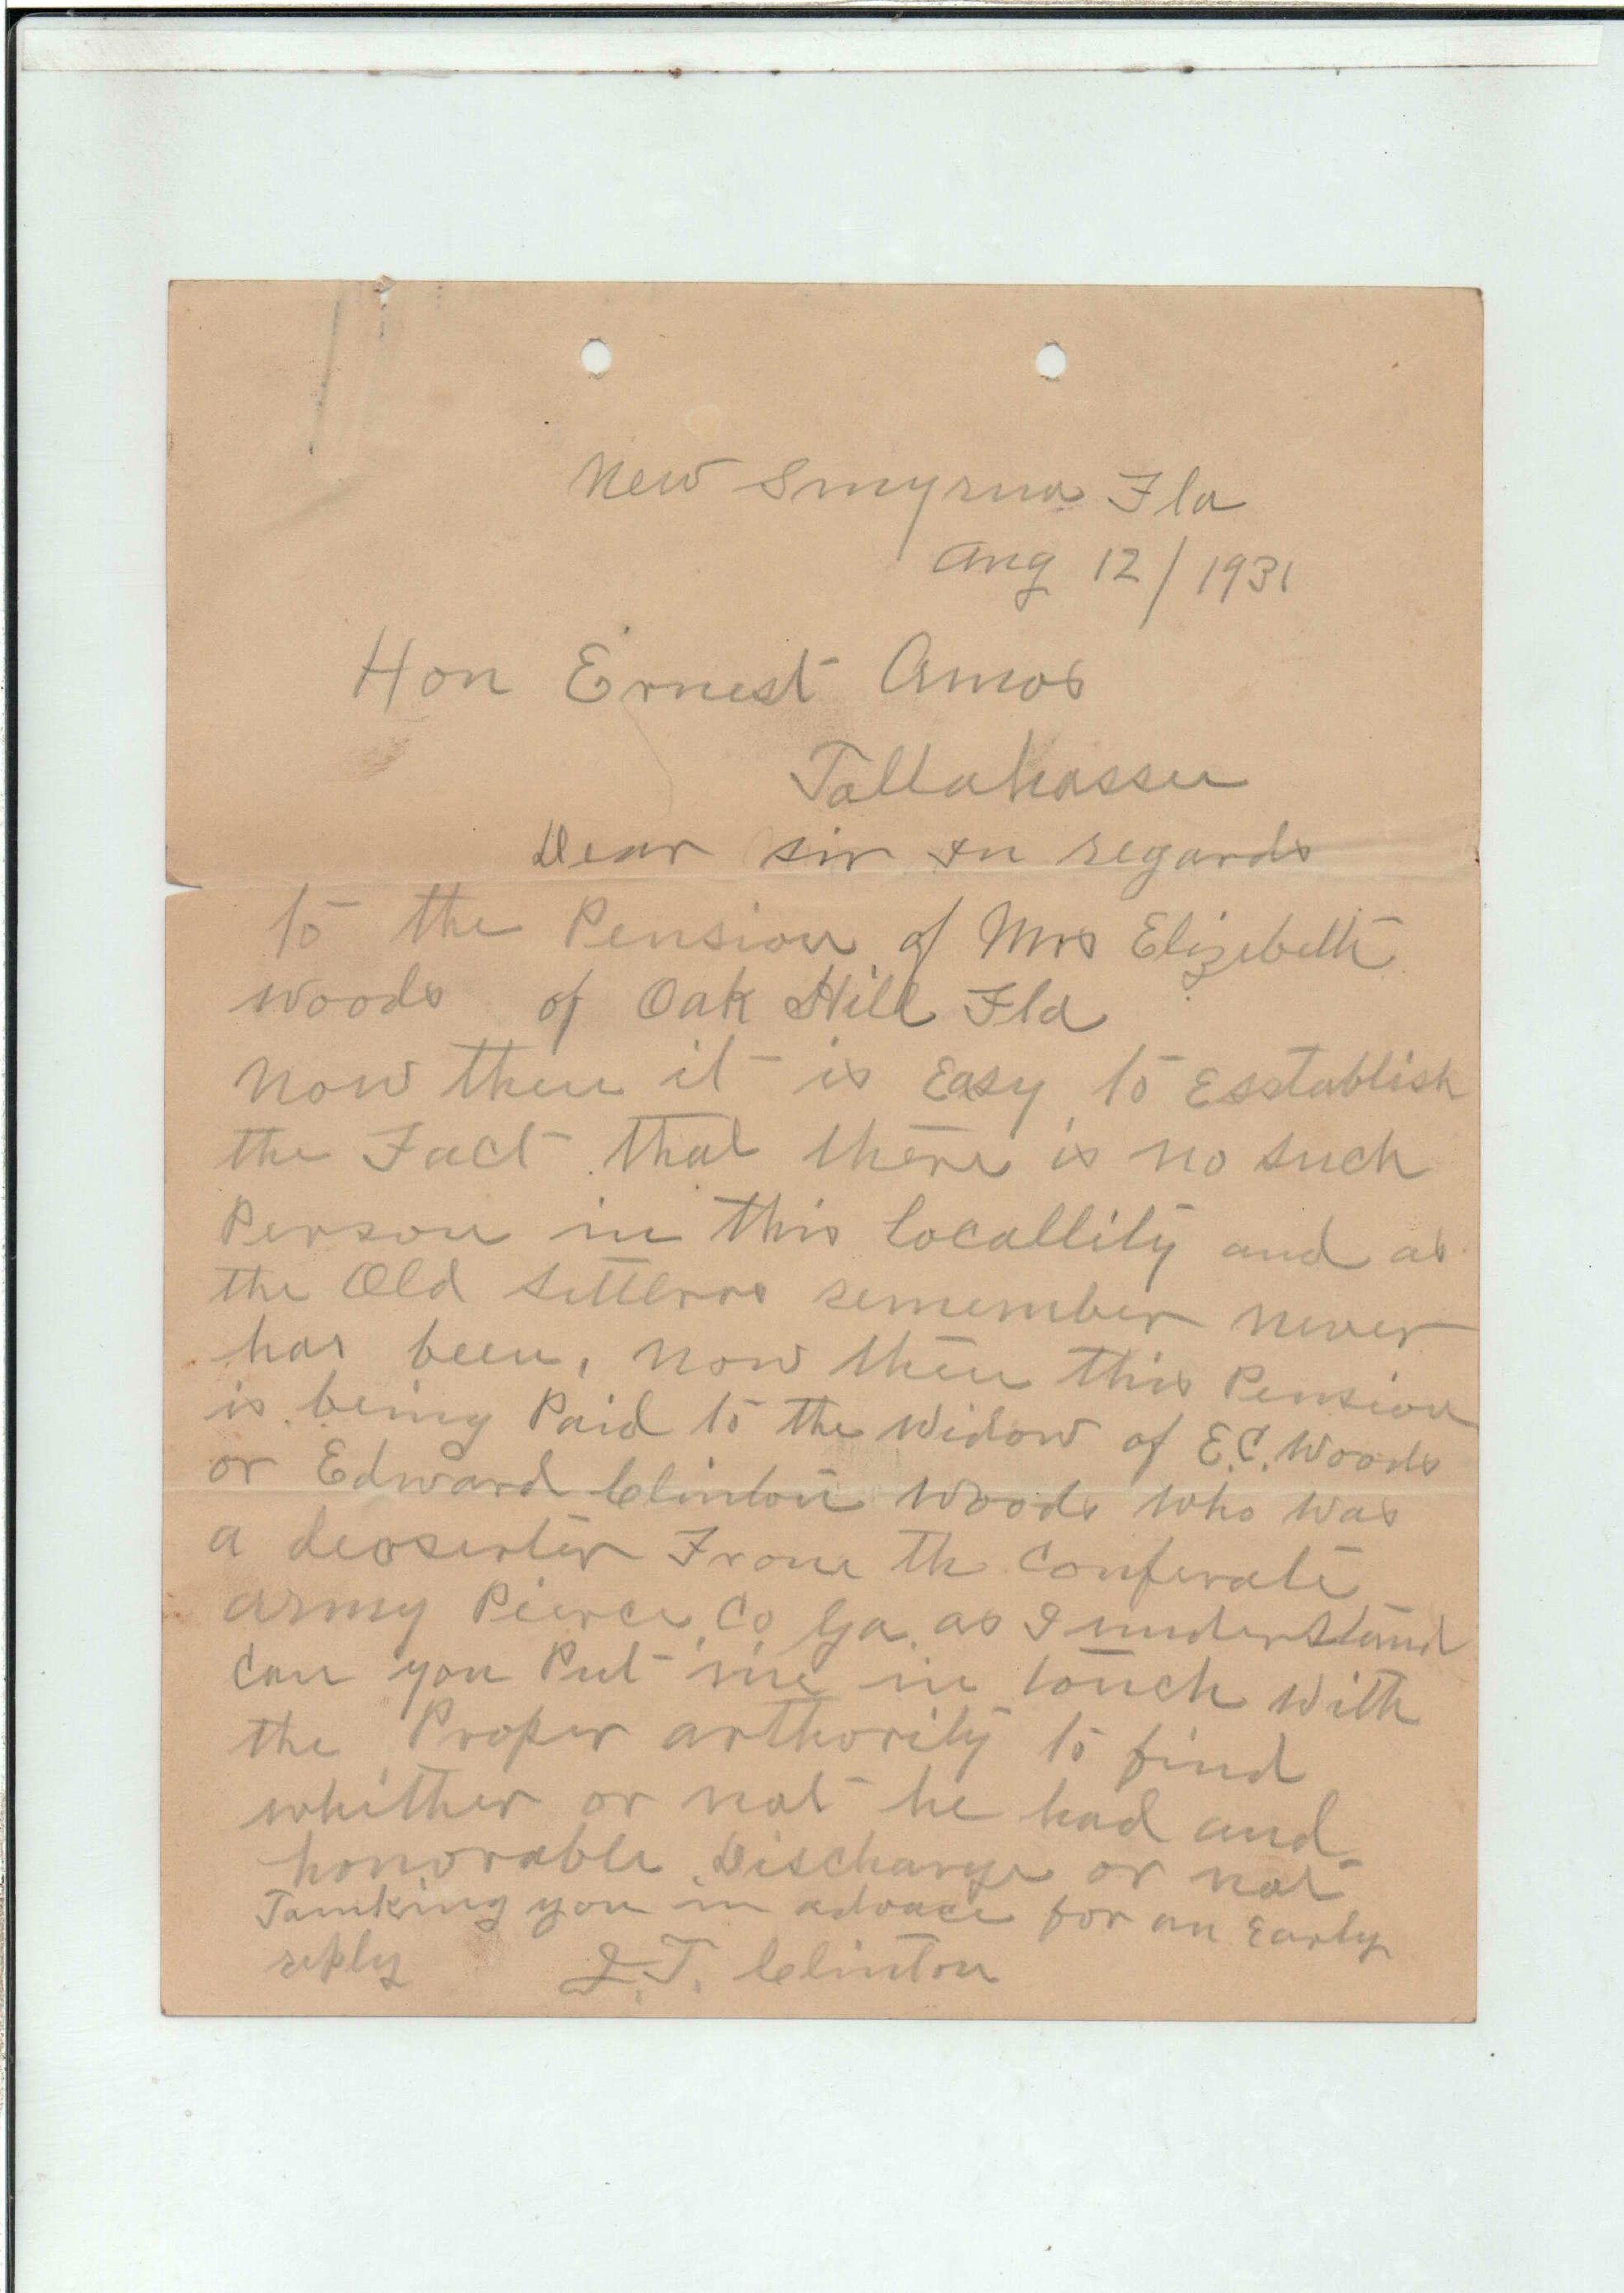 New Smyrna Fla
Aug 12/1931
Hon Ernest Amos
Tallahassee
Dear sir In regards
to the Pension of Mrs Elizebeth
Woods of Oak Hill Fla
Now then it is Easy to Esstablish
the Fact that there is no such
Person in this locallity and as
the Old Settlers remember never
has been, now then this Pension
is being Paid to the Widow of E.C. Woods
or Edward Clinton Woods who was
a deoserter From th Conferate
army Pierce Co Ga. as I understand
Can you Put me in touch with
the Proper arthority to find
whither or not he had and
honorable Discharge or not
Tanking you in advace for an Early
reply J.T. Clinton